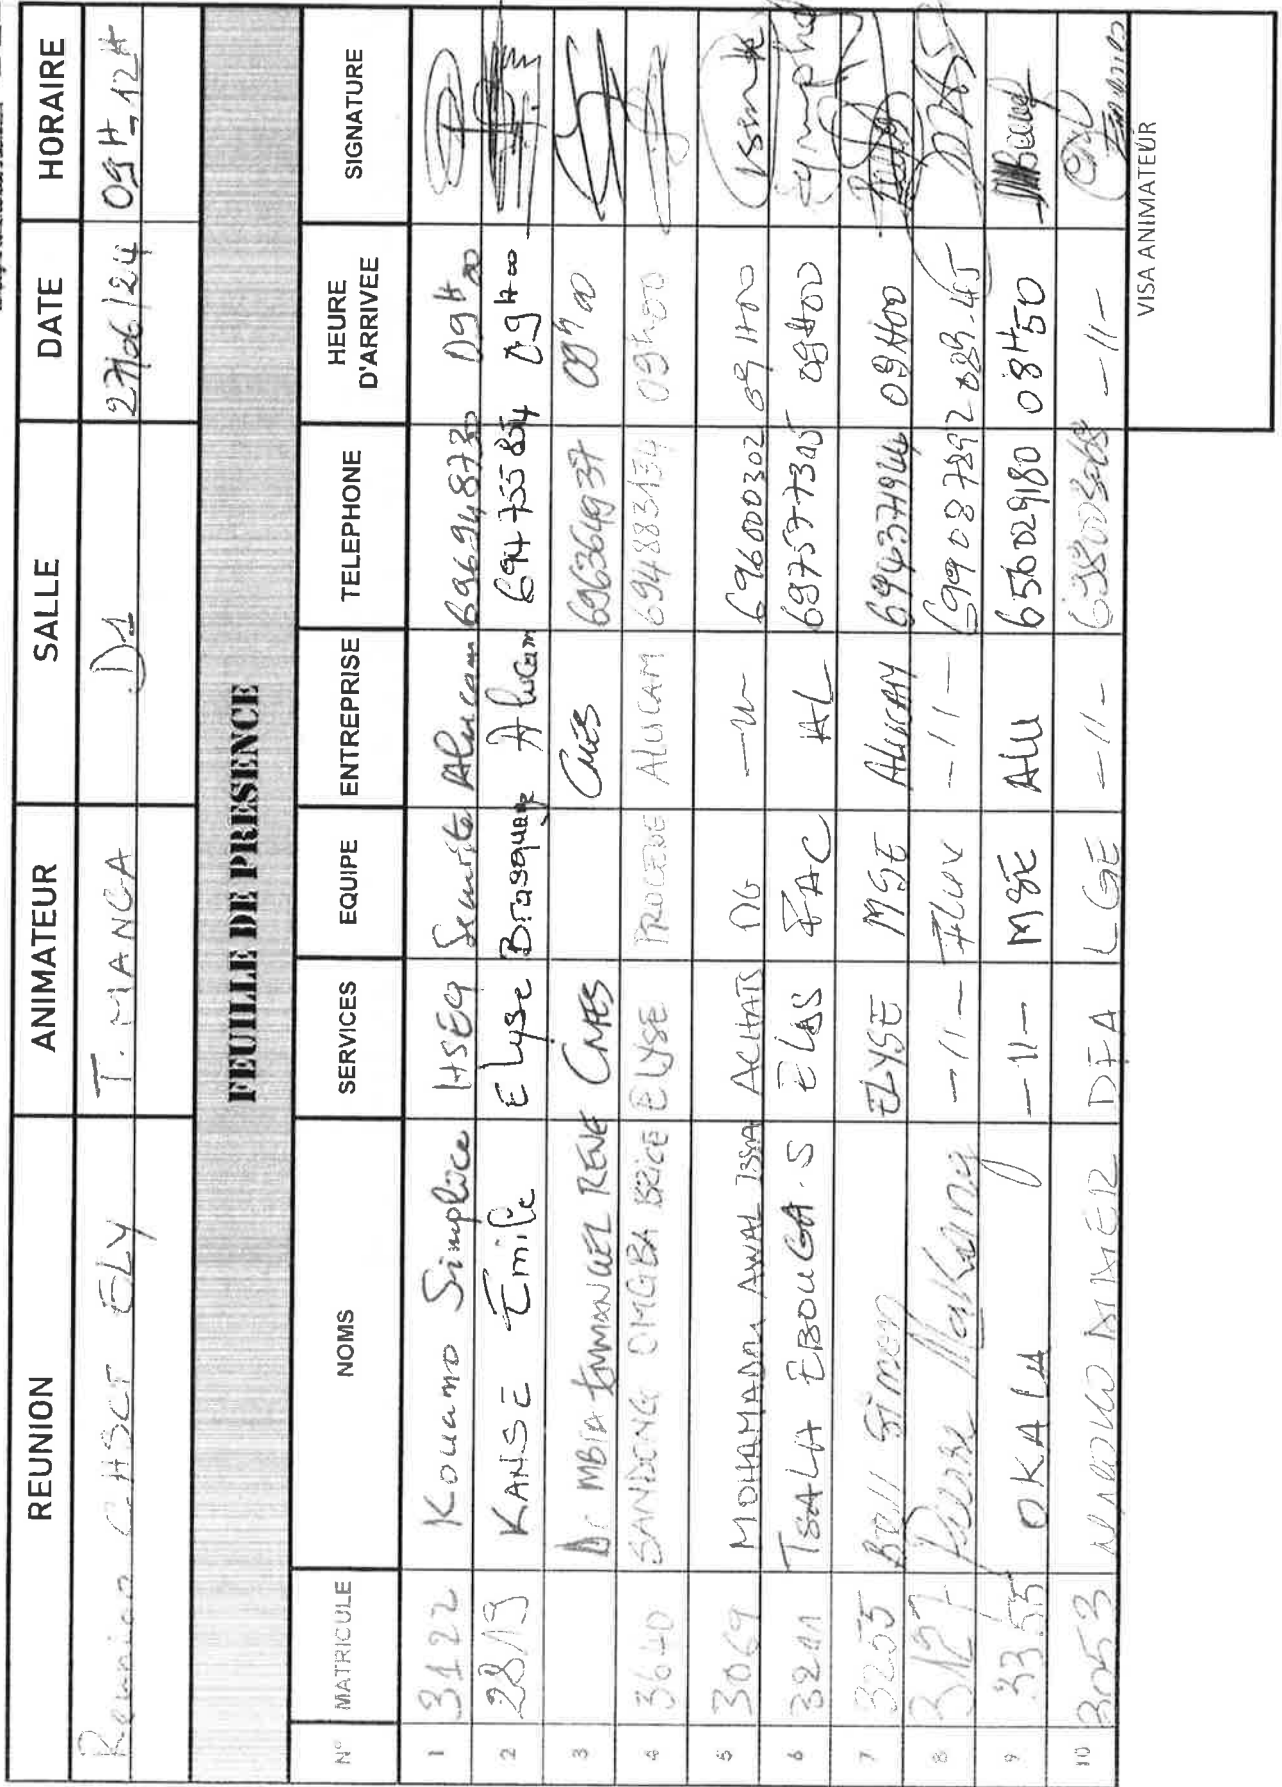 REUNION ANIMATEUR SALLE DATE HORAIRE
Reunion CHSCT ELY T. MANGA D1 27/06/24 09H-12H
FEUILLE DE PRESENCE
N° MATRICULE NOMS SERVICES EQUIPE ENTREPRISE TELEPHONE HEURE D'ARRIVEE SIGNATURE
1 3122 Kouamo Simplice HSEQ Securite Alucam 696948730 09H00
2 2819 KANSE Emile Elyse Brasquage Alucam 694755854 09H00
3 Dr MBIA EMMANUEL RENE CMES CMES 696364937 09h00
4 3640 SANDONG OMGBA BRICE ELYSE PROCEDE ALUCAM 694883154 09h00
5 3069 MOHAMADOU AWAL ISSA ACHATS DG -11- 696000302 09H00
6 3211 TSALA EBOUGA.S ELAS FAC AL 697577305 09H00
7 3255 Bell Simon ELYSE MSE Alucam 694371944 09H00
8 3127 Pierre Makany -11- -11- 699087892
9 3355 OKALA -11- MSE Alu 656029180 08H50
10 3053 DFA LGE -11- -11-
VISA ANIMATEUR